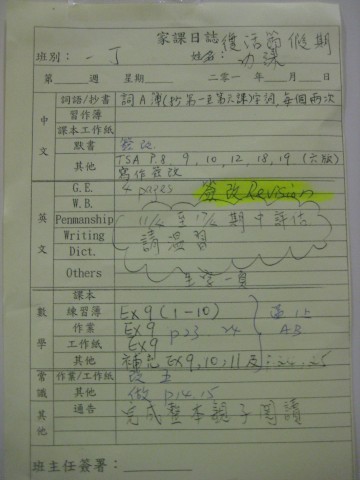 家課日誌 復活節假期
班別：一丁 姓名：功課
第 週 星期 二零一 年 月 日
中文
詞語/抄書 詞A簿(抄第一至第六課)字詞,每個兩次
習作簿
課本工作紙
默書 簽改
其他 TSA P.8, 9, 10, 12, 18, 19 (六版)
寫作簽改
英文
G.E. 4 pages 簽改 Revision
W.B.
Penmanship 至 期中評估
Writing 請溫習
Dict.
Others 生字一頁
數學
課本
練習簿 Ex 9 (1-10)
作業 Ex 9 p23 24
工作紙 Ex 9
其他 補充 Ex 9, 10, 11 及 24, 25
AB
常識
作業/工作紙 改正
其他 做 p14, 15
其他
通告 完成整本親子閱讀
班主任簽署：